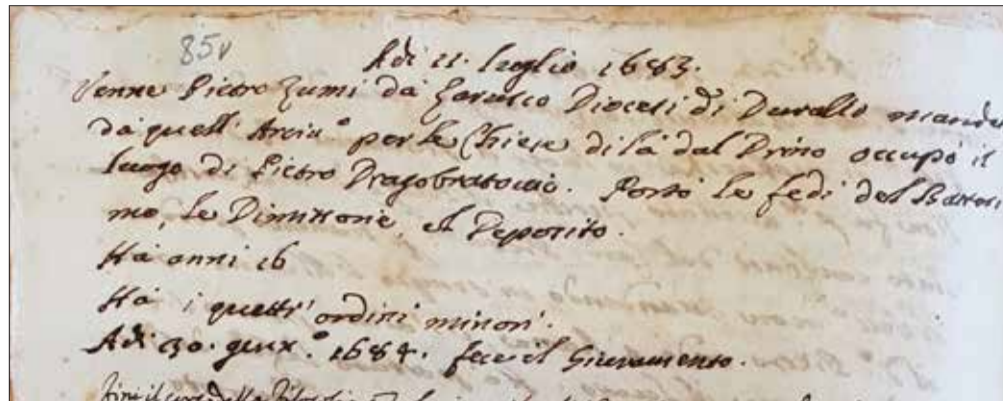 85v
Adi 11. luglio 1683.
Venne Pietro Zumi da Diocesi di Durazzo mandato
da quell' Arciu.º per le Chiese di là dal Drino occupò il
luogo di Pietro Dragobratouic. Portò le fedi del Battesi
mo, le Dimissorie, el Deposito.
Ha anni 16
Ha i quattr' ordini minori.
Adi 30. genx.º 1684. fece il Giuramento.